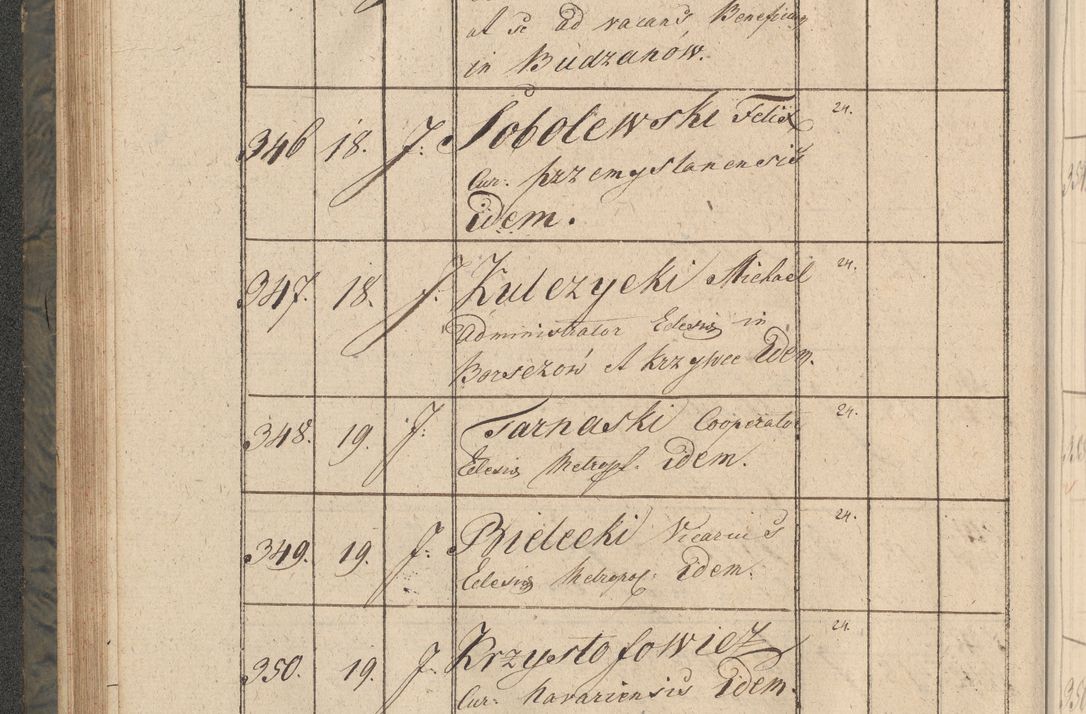 at se ad vacans Beneficium
in Budzanów.
346 18. J. Sobolewski Felix 24.
Cur. przemyslanensis
Idem.
347. 18. J. Kulczycki Michael 24.
Administrator Eclesiæ in
Borsczów et Krzywce Idem.
348. 19. J. Tarnaski Cooperator 24.
Eclesiæ Metropl. idem.
349. 19. J. Bielecki Vicarius 24.
Eclesiæ Metropol. Idem.
350. 19. J. Krzysztofowicz 24.
Cur. Navariensis Idem.